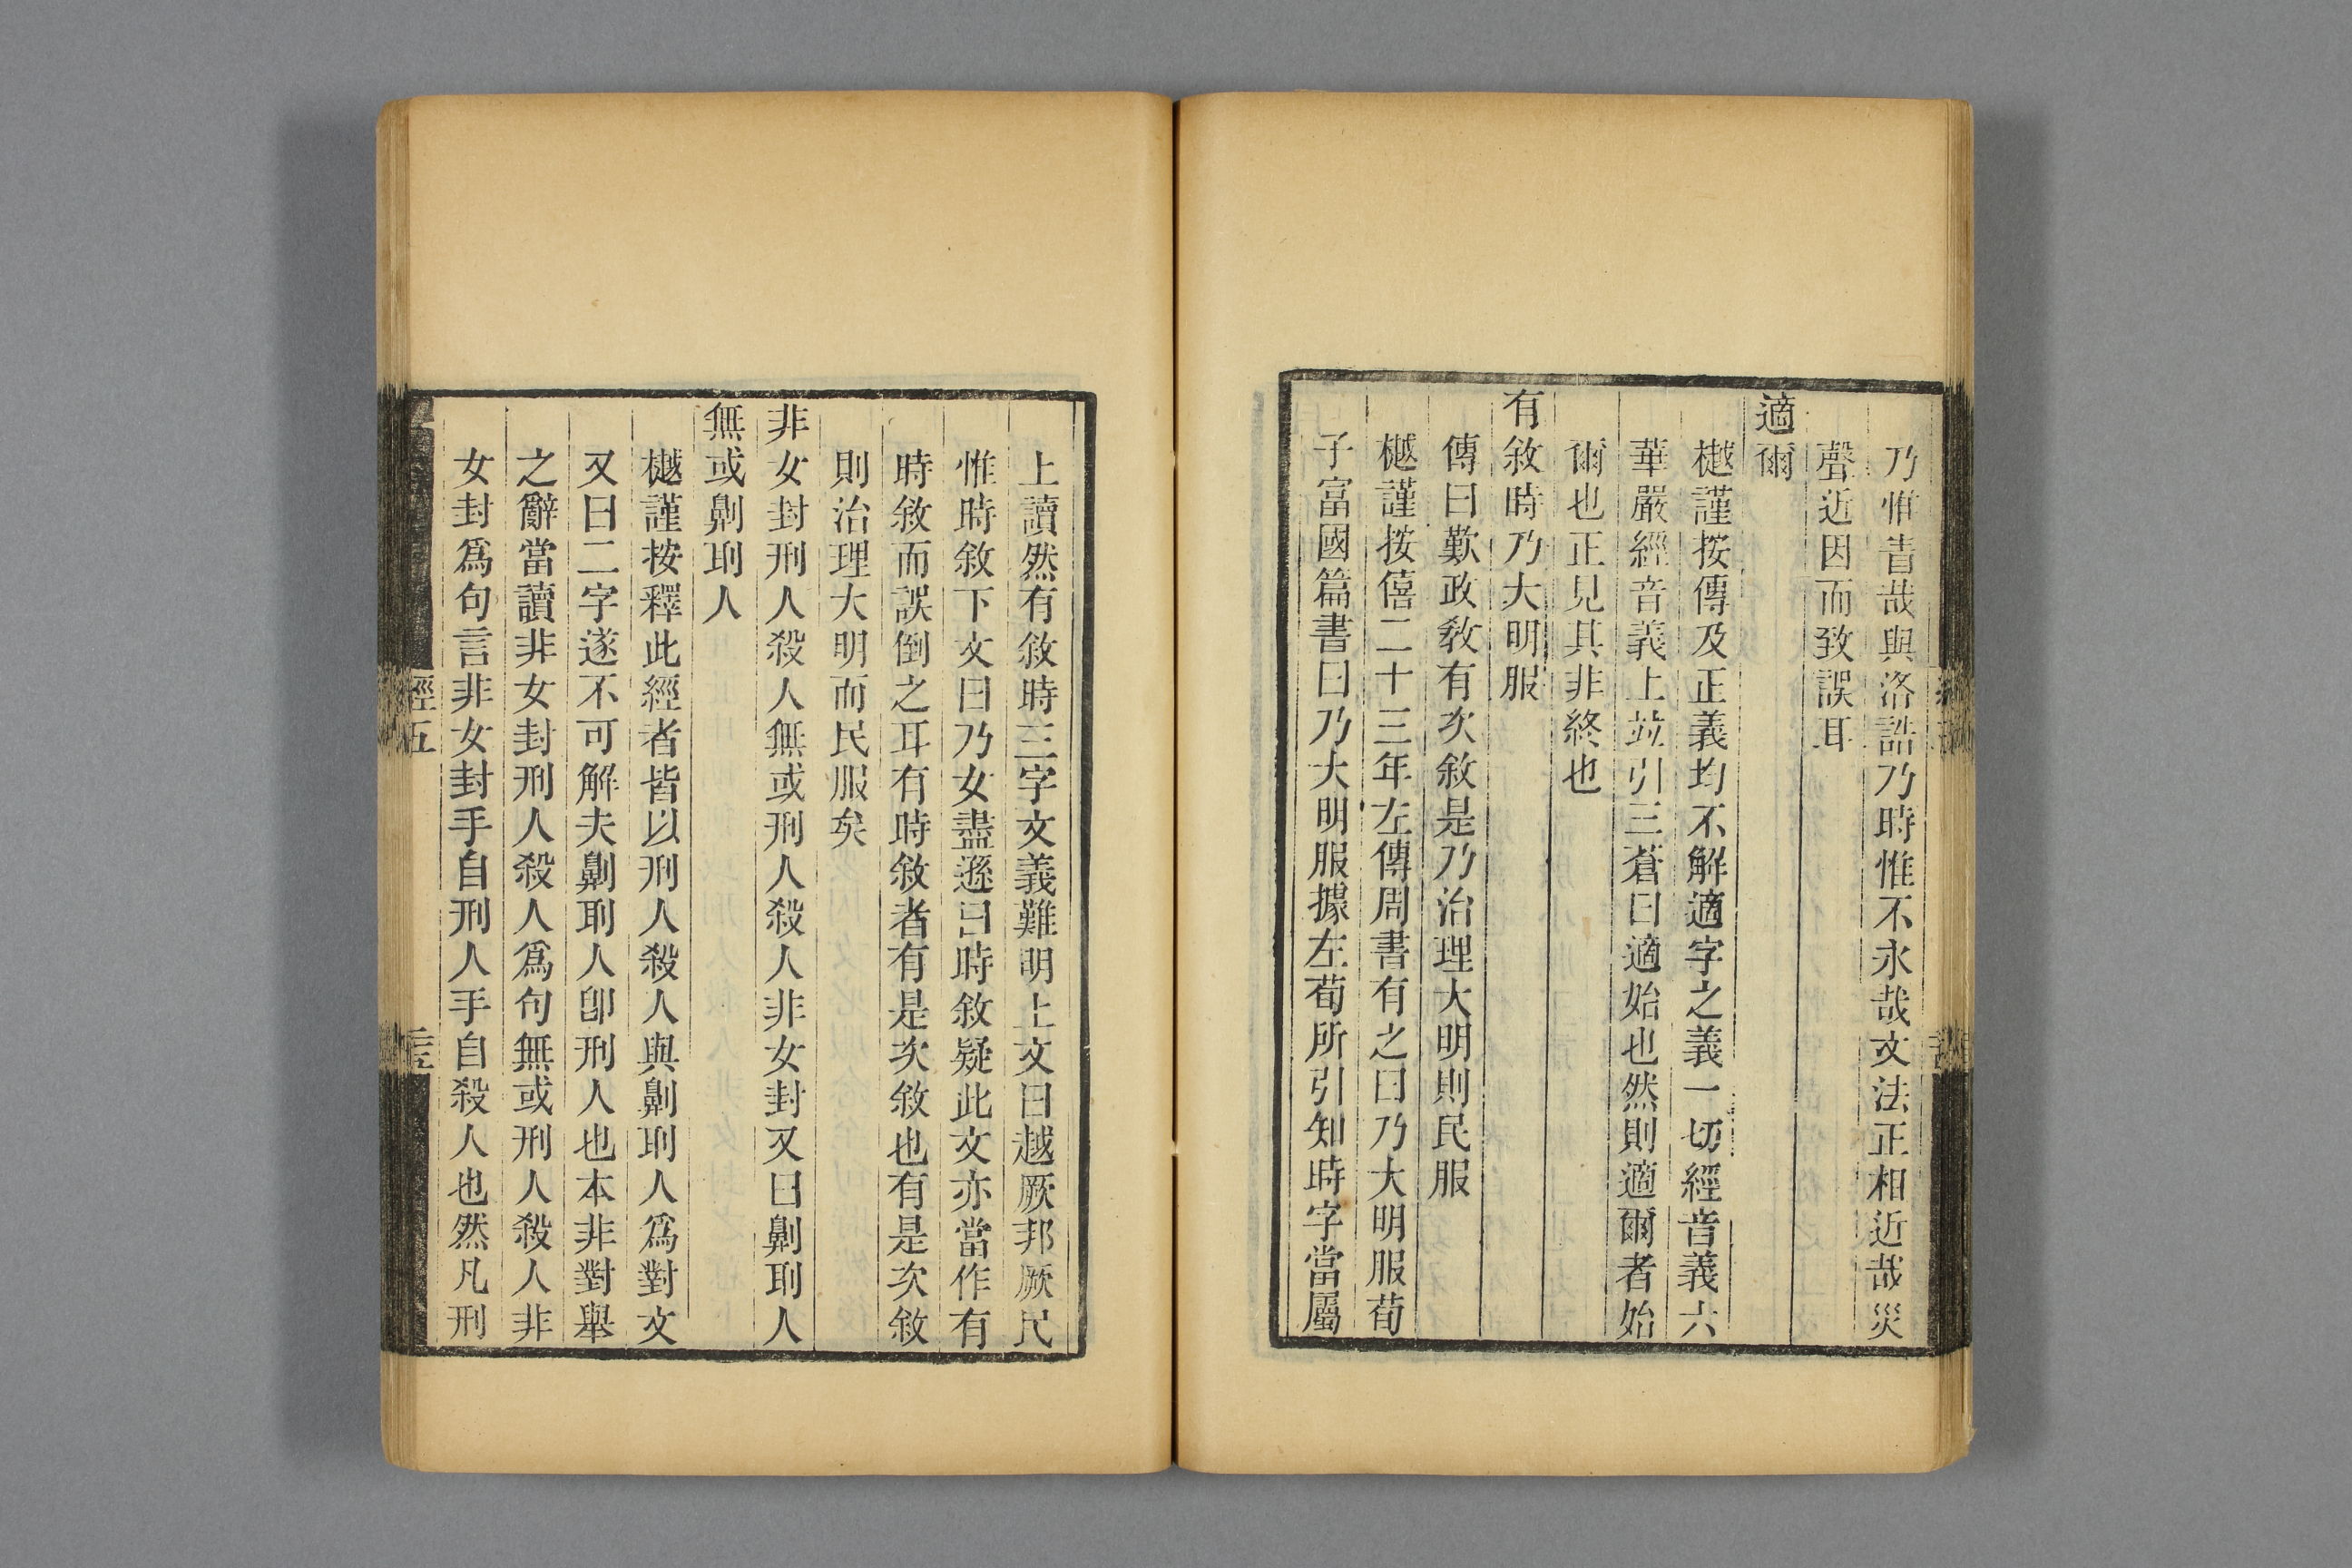 乃惟眚哉與洛誥乃時惟不永哉文法正相近哉災
聲近因而致誤耳
適爾
樾謹按傳及正義均不解適字之義一切經音義六
華嚴經音義上竝引三蒼曰適始也然則適爾者始
爾也正見其非終也
有敘時乃大明服
傳曰歎政敎有次敘是乃治理大明則民服
樾謹按僖二十三年左傳周書有之曰乃大明服荀
子富國篇書曰乃大明服據左荀所引知時字當屬
上讀然有敘時三字文義難明上文曰越厥邦厥民
惟時敘下文曰乃女盡遜曰時敘疑此文亦當作有
時敘而誤倒之耳有時敘者有是次敘也有是次敘
則治理大明而民服矣
非女封刑人殺人無或刑人殺人非女封又曰劓刵人
無或劓刵人
樾謹按釋此經者皆以刑人殺人與劓刵人爲對文
又曰二字遂不可解夫劓刵人卽刑人也本非對舉
之辭當讀非女封刑人殺人爲句無或刑人殺人非
女封爲句言非女封手自刑人手自殺人也然凡刑
經五